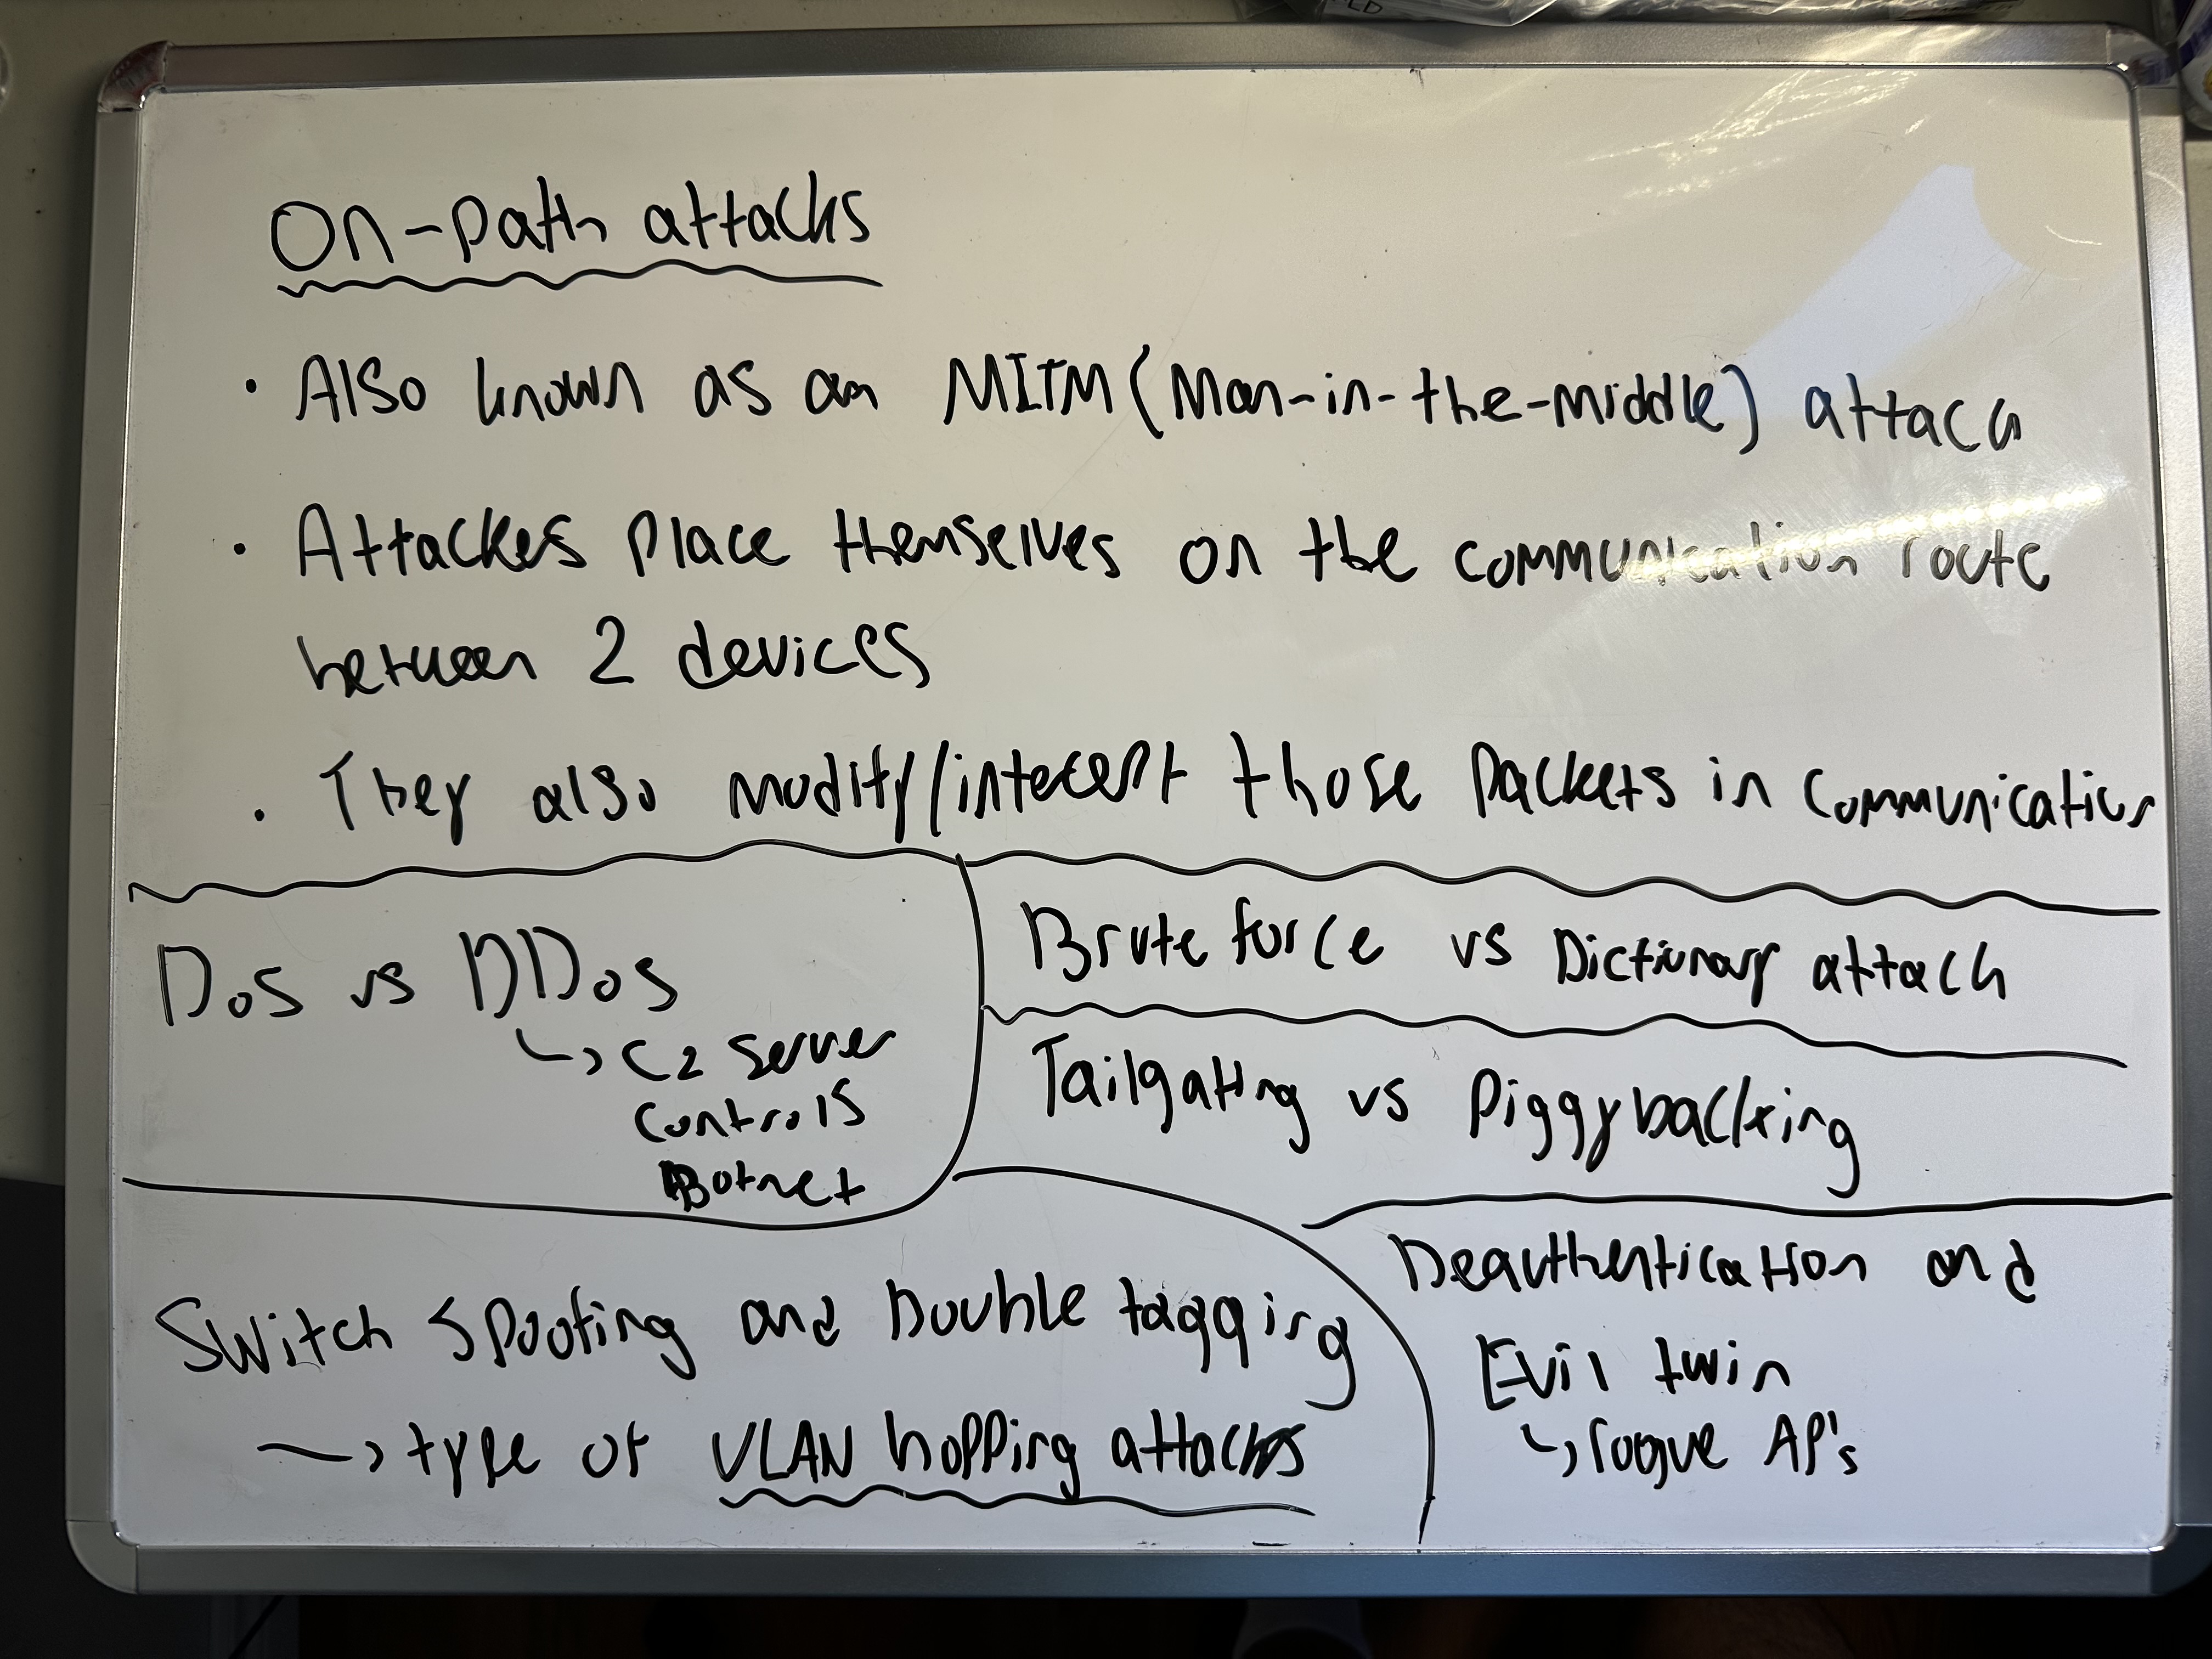 On-path attacks
• Also known as an MITM (Man-in-the-middle) attack
• Attackes place themselves on the communication route
between 2 devices
• They also modify/intecept those packets in communication
DoS vs DDos
↳ C2 server
controls
Botnet
Brute force vs Dictionary attack
Tailgating vs Piggybacking
Switch spoofing and Double tagging
→ type of VLAN hopping attacks
Deauthentication and
Evil twin
↳ rogue AP's